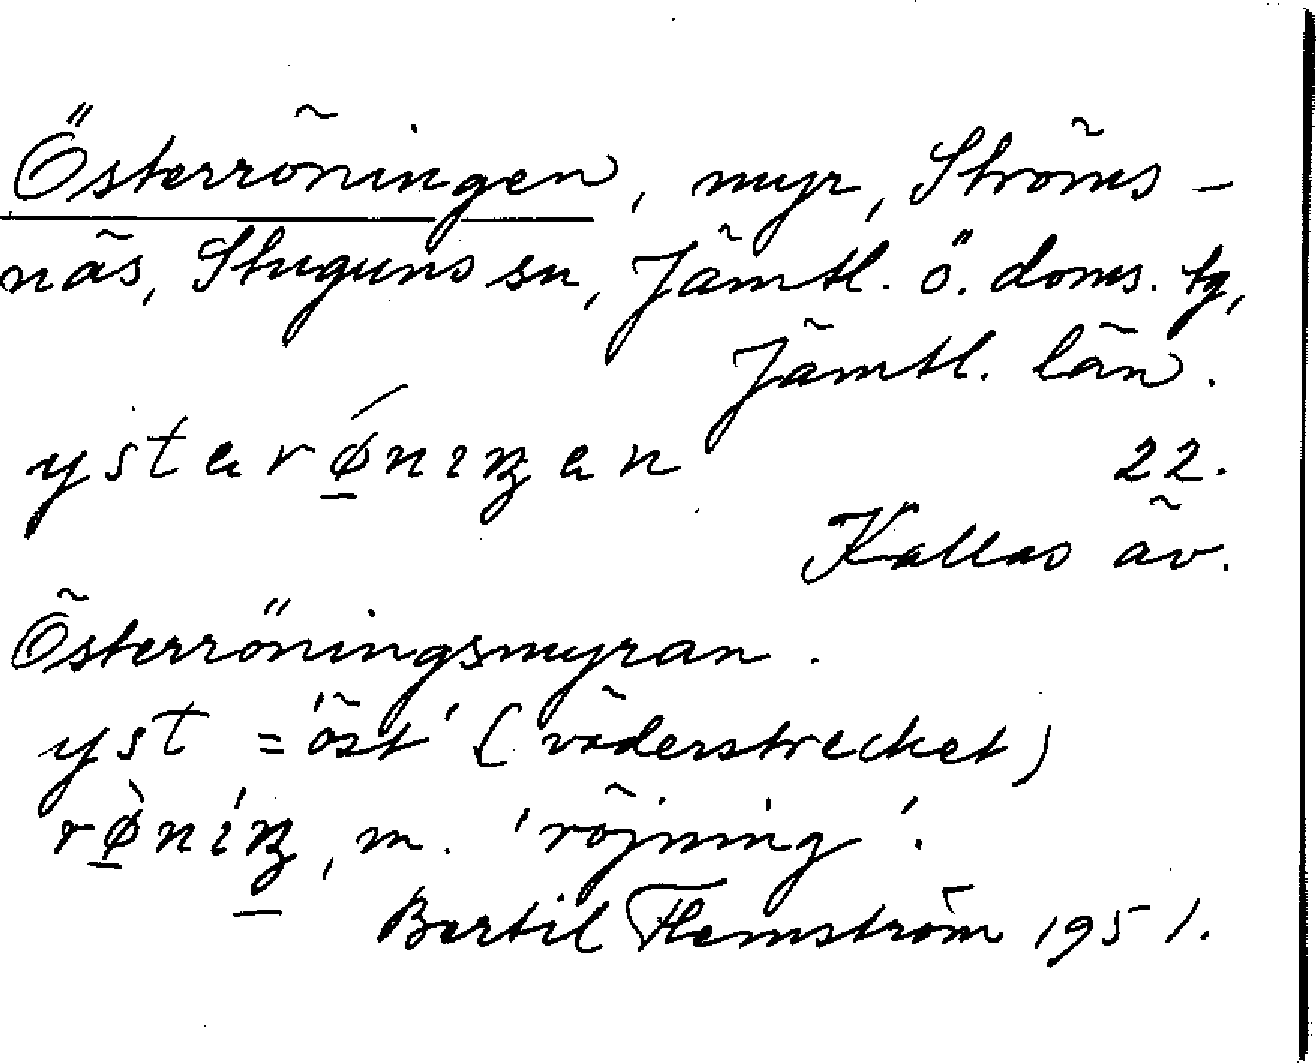 Österröningen, myr, Ströms-
näs, Stuguns sn, Jämtl. ö. doms. tg,
Jämtl. län.
ysterǿ̠niŋen 22.
Kallas äv.
Österröningsmyran.
yst = 'öst' (väderstrecket)
rø̠̀níŋ̠, m. 'röjning'.
Bertil Flemström 1951.